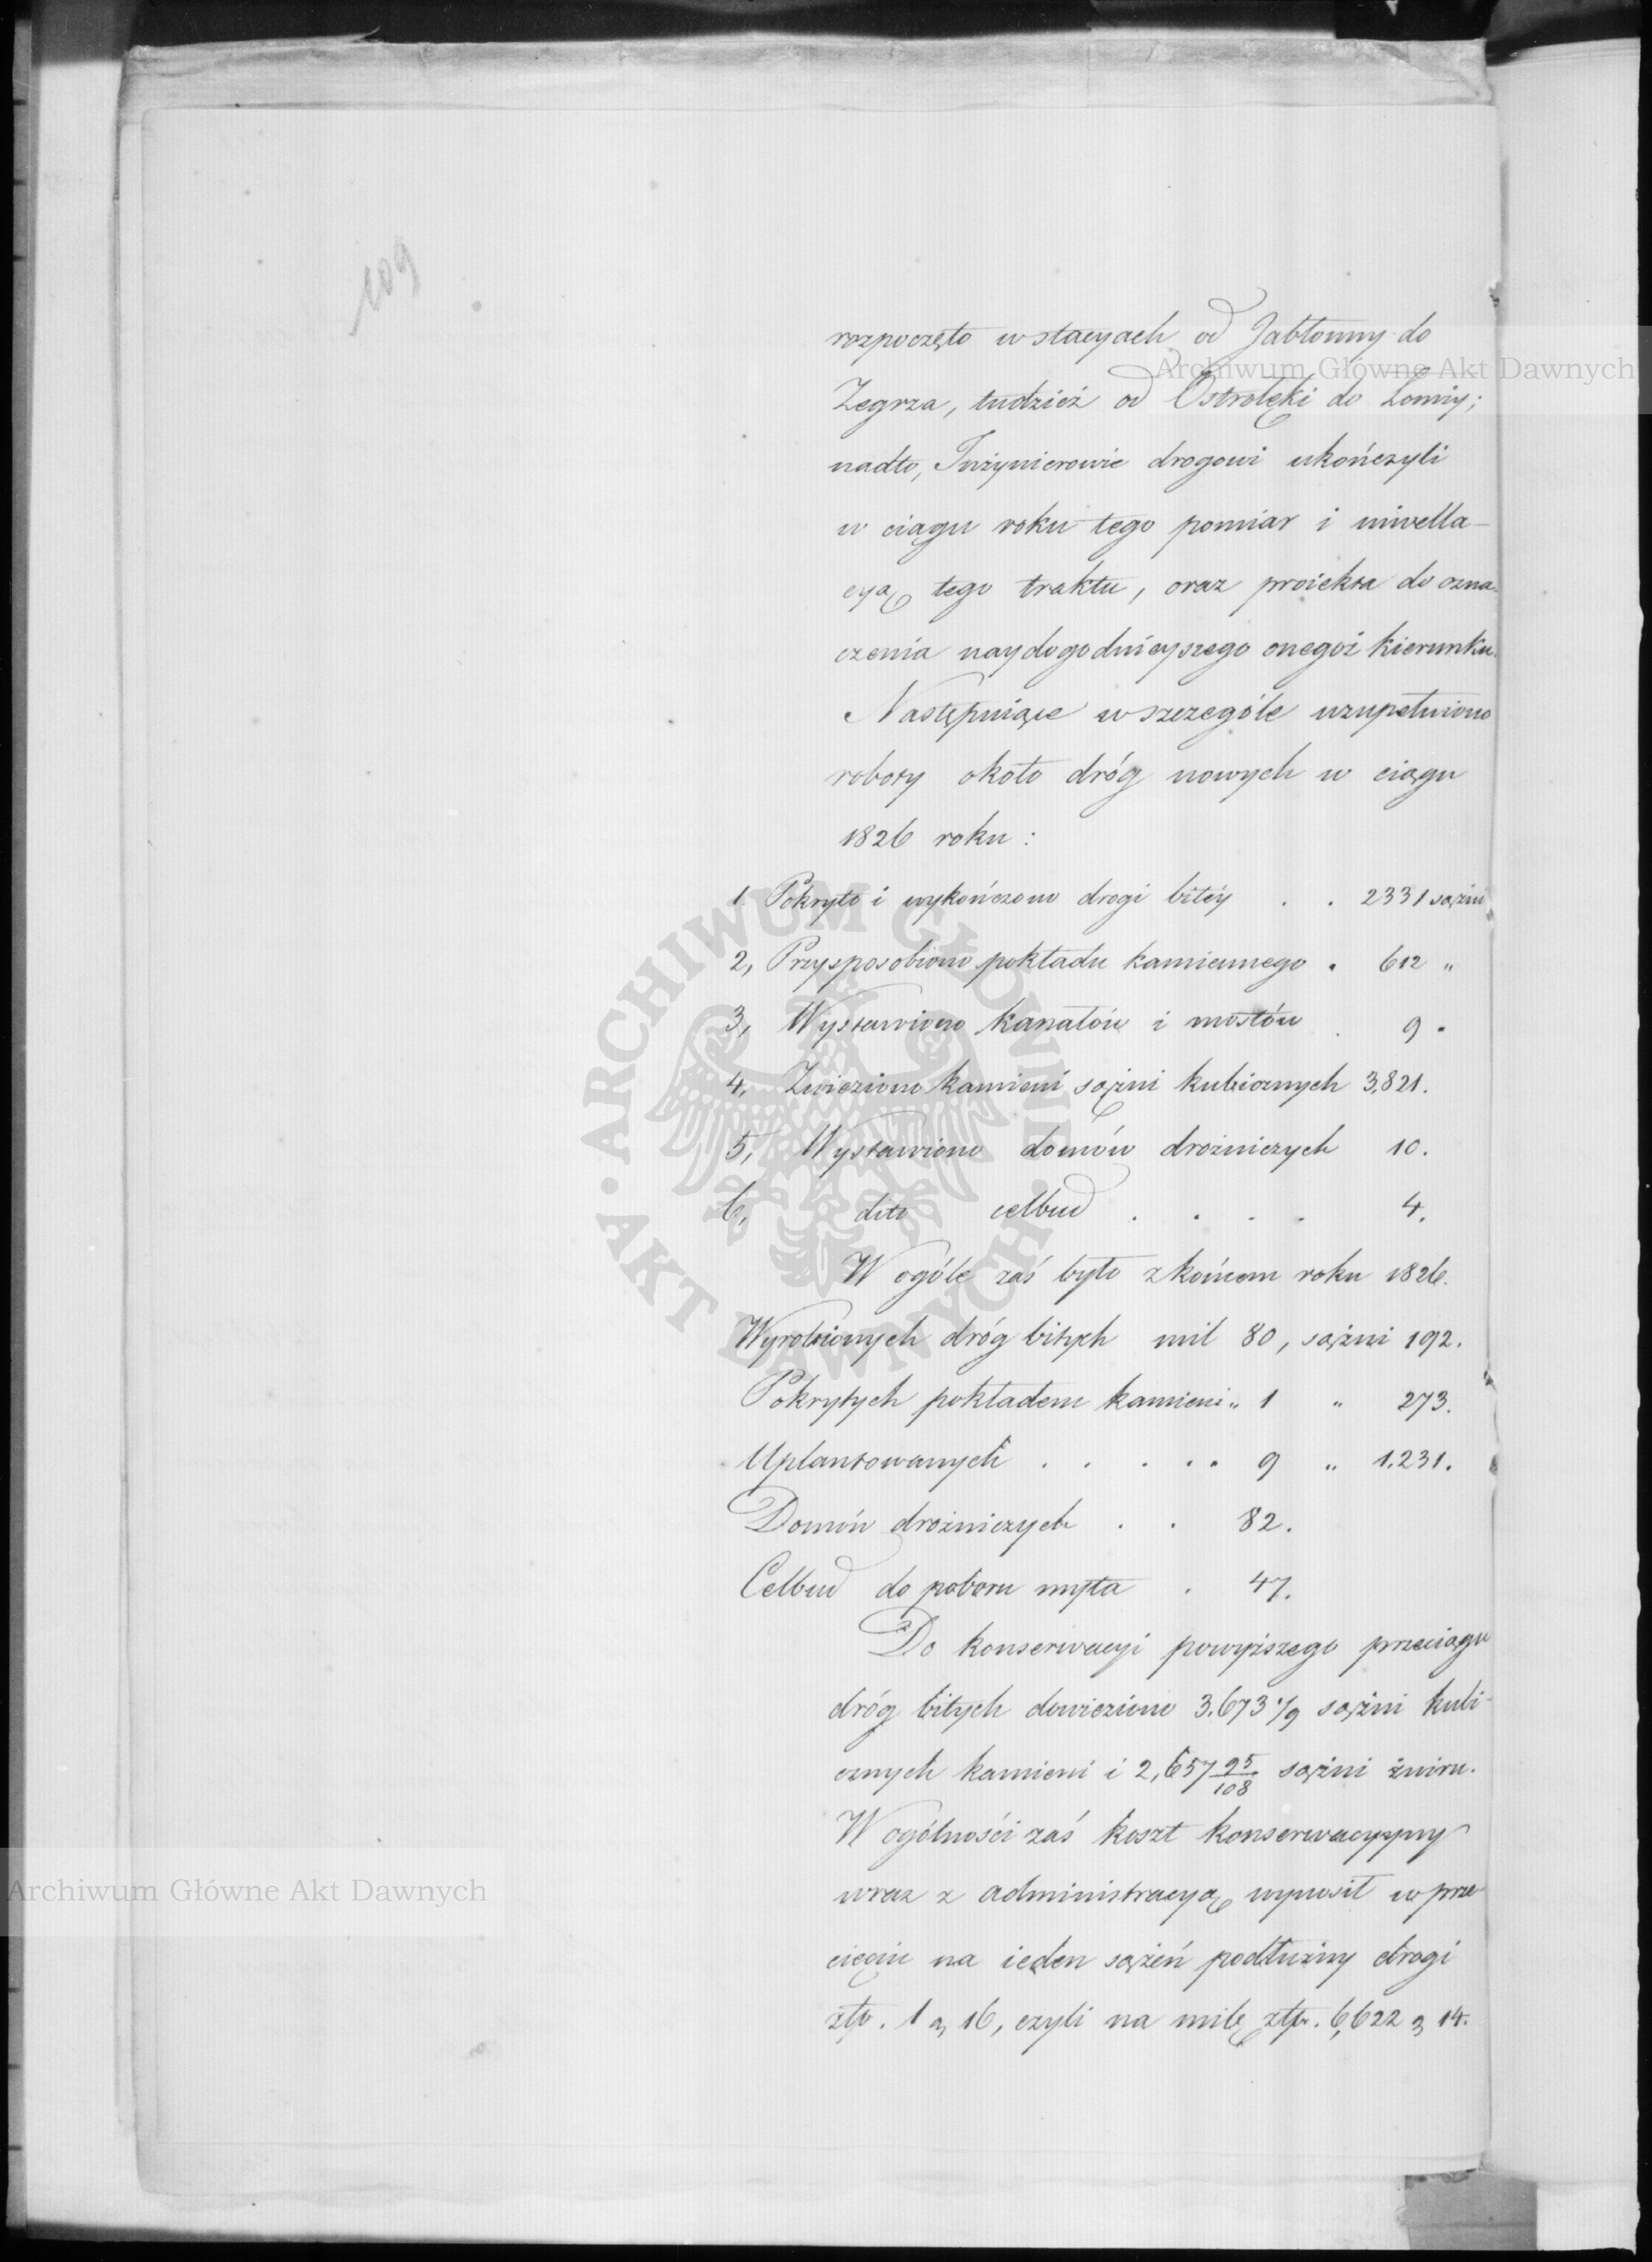 109
rozpoczęto w stacyach od Jabłonny do
Zegrza, tudzież od Ostrołęki do Łomży;
nadto, Inżynierowie drogowi ukończyli
w ciągu roku tego pomiar i niwella-
cyą tego traktu, oraz proiekta do ozna-
czenia naydogodnieyszego onegoż kierunku.
Następuiące w szczególe uzupełniono
roboty około dróg nowych w ciągu
1826 roku:
1. Pokryto i wykończono drogi bitéy . . 2331 sążni
2, Przysposobiono pokładu kamiennego . 612 "
3, Wystawiono kanałów i mostów . 9.
4, Zwieziono kamieni sążni kubicznych 3,821.
5, Wystawiono domów drożniczych 10.
6, dito celbud . . . . 4.
W ogóle zaś było z końcem roku 1826.
Wyrobionych dróg bitych mil 80, sążni 192.
Pokrytych pokładem kamieni " 1 " 273.
Uplantowanych . . . . . 9 " 1.231.
Domów drożniczych . . 82.
Celbud do poboru myta . 47.
Do konserwacyi powyższego przeciągu
dróg bitych dowieziono 3.673 1/9 sążni kubi-
cznych kamieni i 2,657 95/108 sążni żwiru.
W ogólności zaś koszt konserwacyyny
wraz z administracyą wynosił w prze-
cięciu na ieden sążeń podłużny drogi
złp. 1 g 16, czyli na milę złp. 6,622 g 14.
Archiwum Główne Akt Dawnych
Archiwum Główne Akt Dawnych
ARCHIWUM GŁÓWNE AKT DAWNYCH